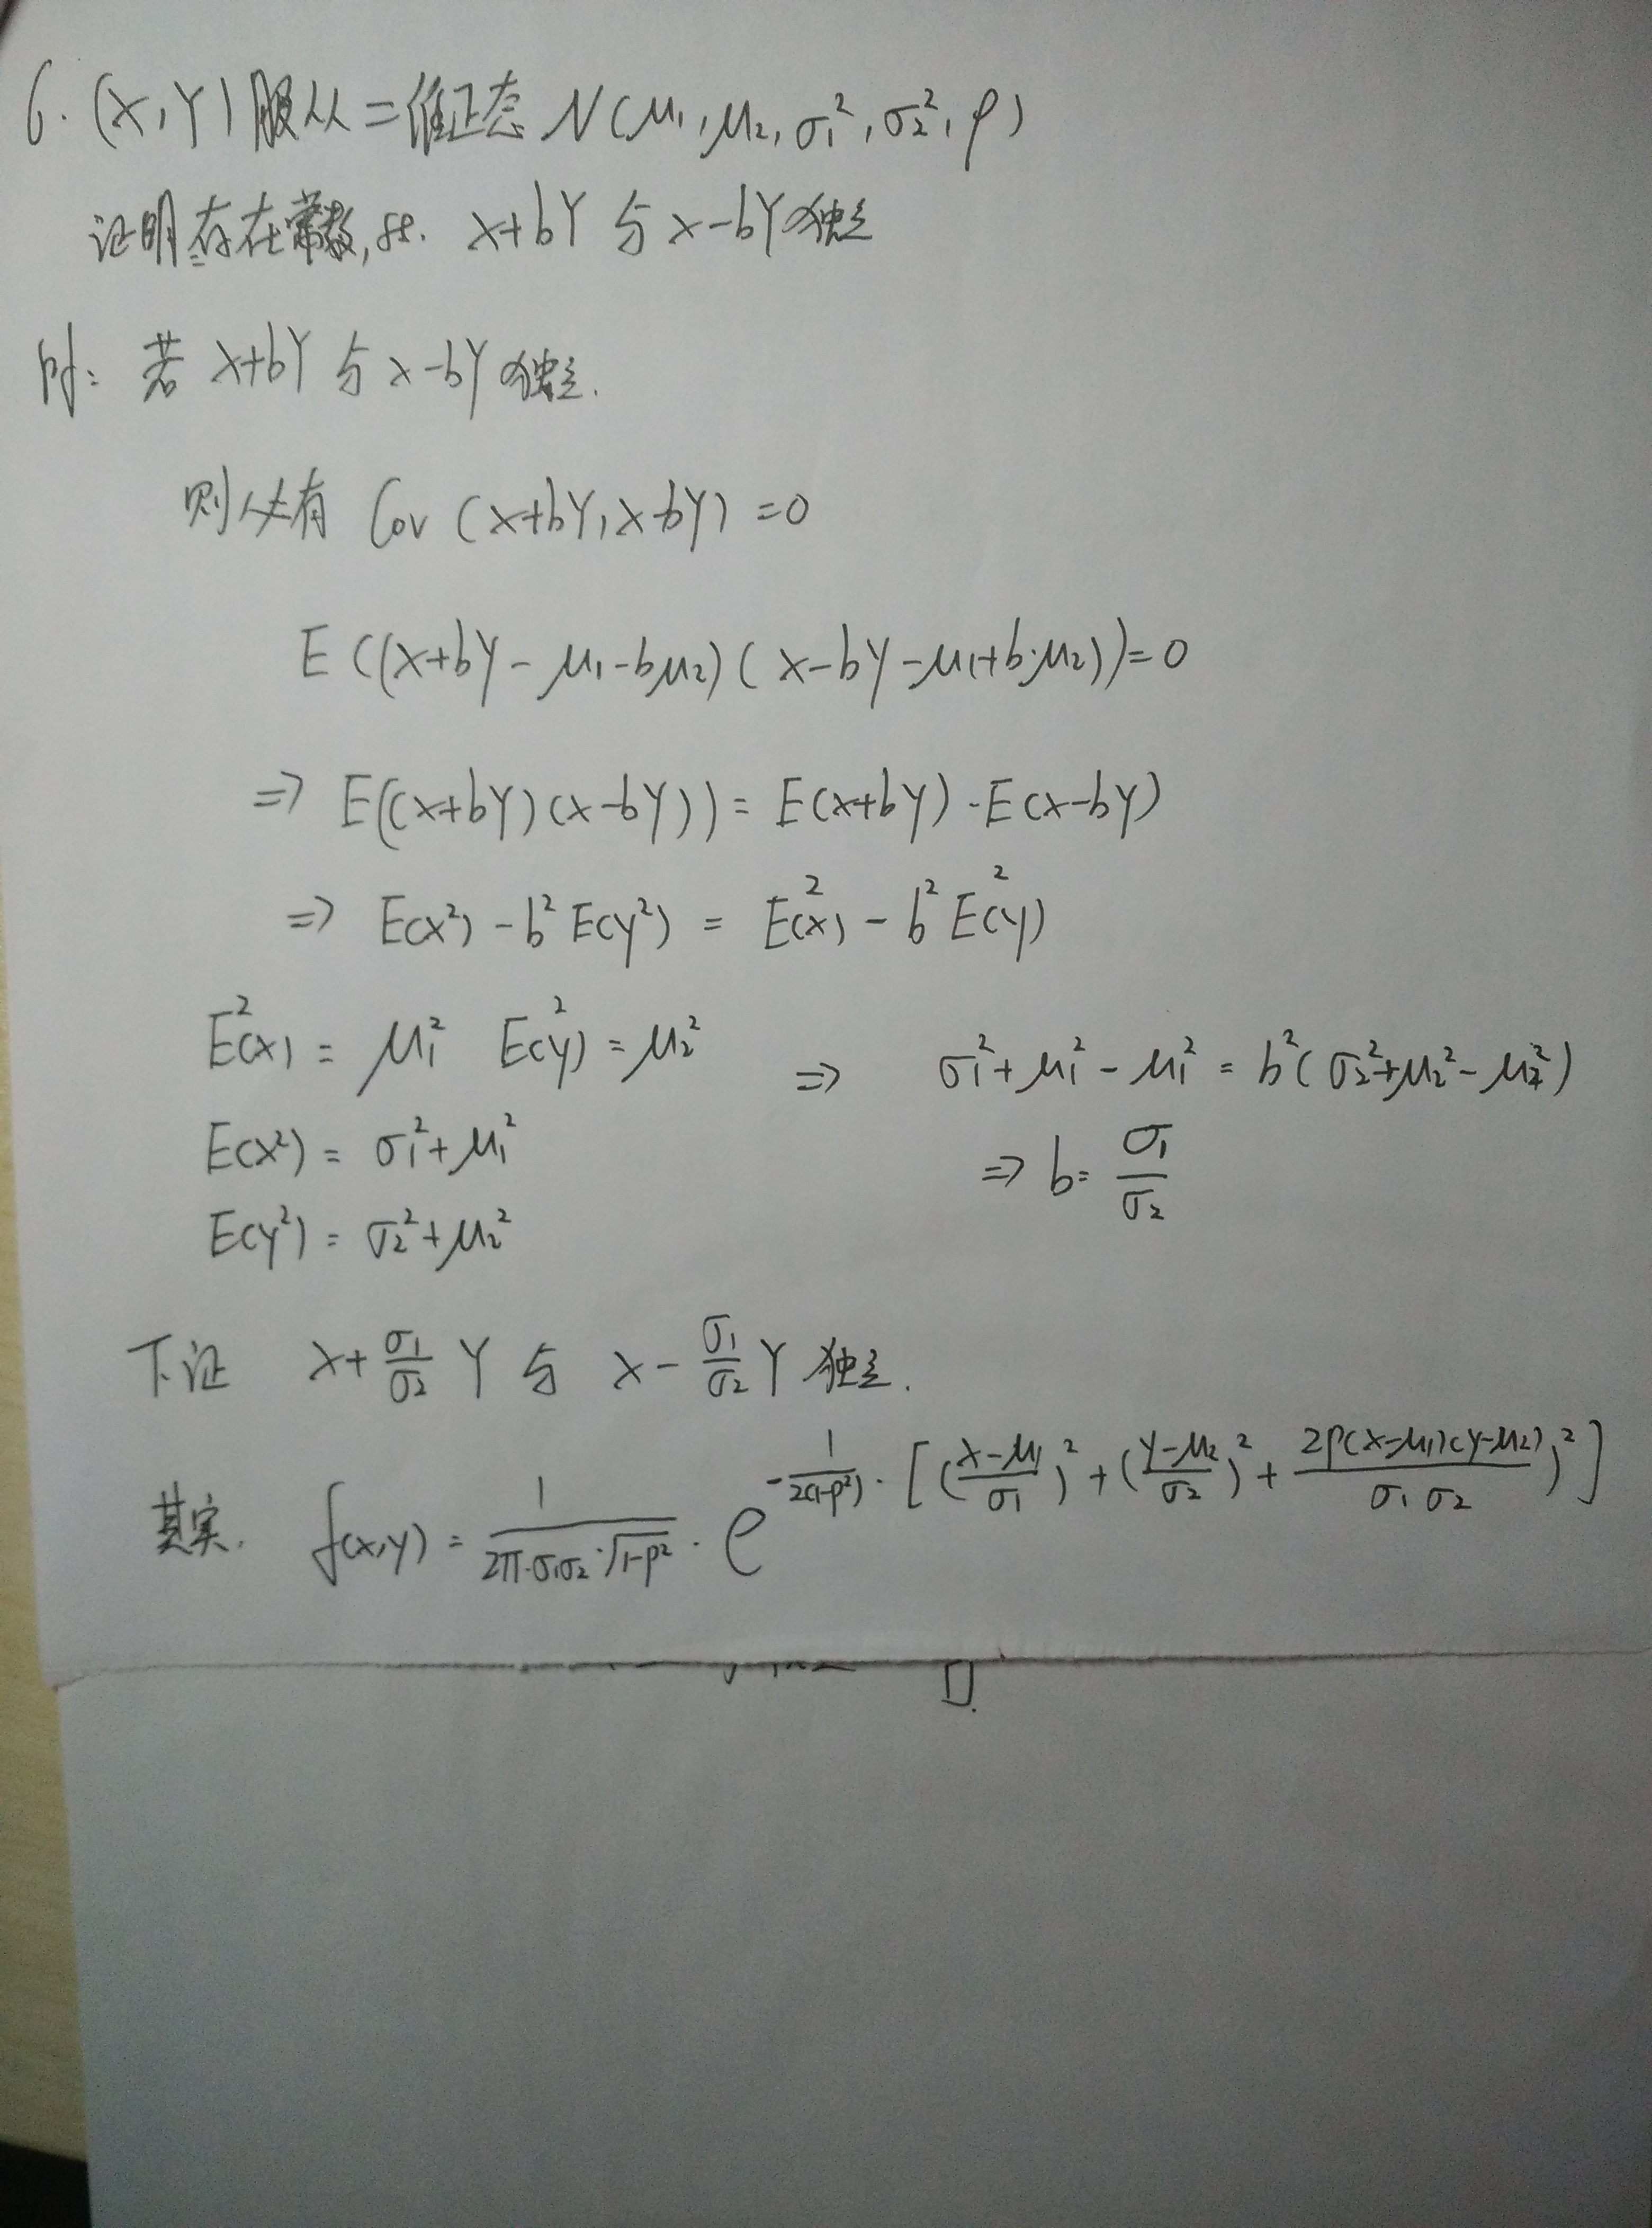 6. (X,Y)服从二维正态 N(μ₁,μ₂,σ₁²,σ₂²,ρ)
证明存在常数, st. X+bY 与 X-bY独立
pf: 若 X+bY 与 X-bY 独立.
则必有 Cov (X+bY, X-bY) = 0
E((X+bY-μ₁-bμ₂)(X-bY-μ₁+b·μ₂))=0
⇒ E((X+bY)(X-bY)) = E(X+bY)·E(X-bY)
⇒ E(X²) - b²E(Y²) = E²(X) - b²E²(Y)
E²(X) = μ₁² E²(Y) = μ₂² ⇒ σ₁²+μ₁²-μ₁² = b²(σ₂²+μ₂²-μ₂²)
E(X²) = σ₁²+μ₁² ⇒ b = σ₁/σ₂
E(Y²) = σ₂²+μ₂²
下证 X+σ₁/σ₂ Y 与 X-σ₁/σ₂ Y 独立.
其实. f(x,y) = 1/(2π·σ₁σ₂·√(1-ρ²)) · e^(-1/(2(1-ρ²))·[((x-μ₁)/σ₁)²+((y-μ₂)/σ₂)²+(2ρ(x-μ₁)(y-μ₂)/(σ₁σ₂))²])